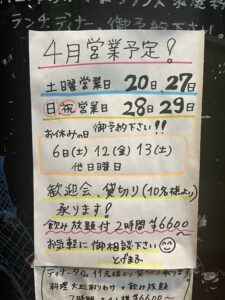 ランチ、ディナー 御予約下さい。
4月営業予定!
土曜営業日 20日、27日
日祝営業日 28日29日
お休みの日 御予約下さい!!
6日(土) 12(金) 13(土)
他日曜日
歓迎会、貸切り(10名様より)
承ります!
飲み放題付 2時間 ¥6600
お気軽に御相談下さい
とげまる
ディナータイム 11名様より 貸切り承ります
料理 大皿おりわけ + 飲み放題